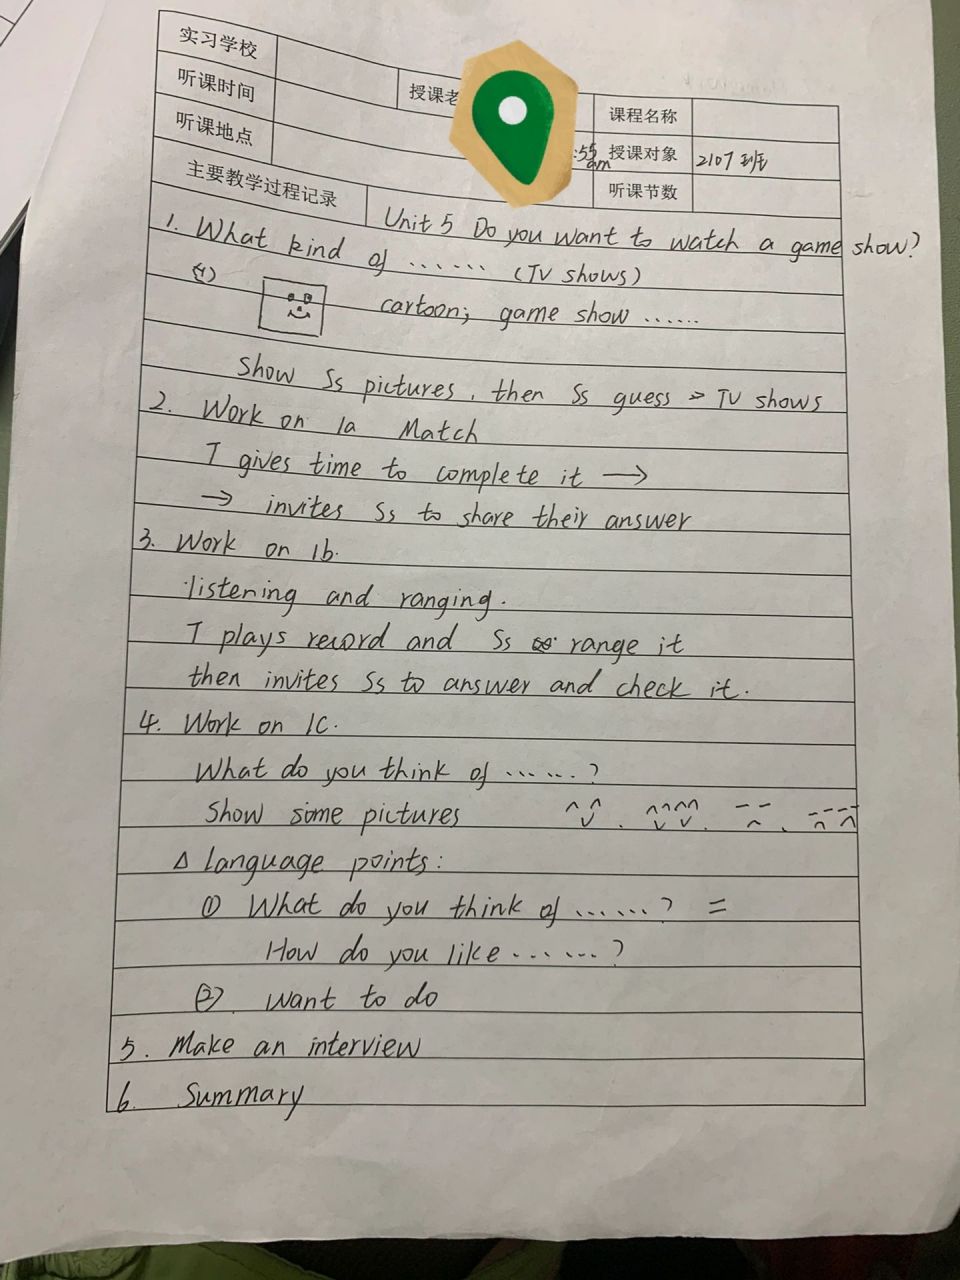 实习学校
听课时间 授课老 课程名称
听课地点 :55 am 授课对象 2107班
主要教学过程记录 听课节数
Unit 5 Do you want to watch a game show?
1. What kind of ...... (TV shows)
(1) cartoon; game show ......
Show Ss pictures, then Ss guess → TV shows
2. Work on 1a Match
T gives time to complete it →
→ invites Ss to share their answer
3. Work on 1b.
listening and ranging.
T plays record and Ss range it
then invites Ss to answer and check it.
4. Work on 1C.
What do you think of ......?
Show some pictures
△ language points:
① What do you think of ......? =
How do you like ......?
② want to do
5. Make an interview
6. Summary